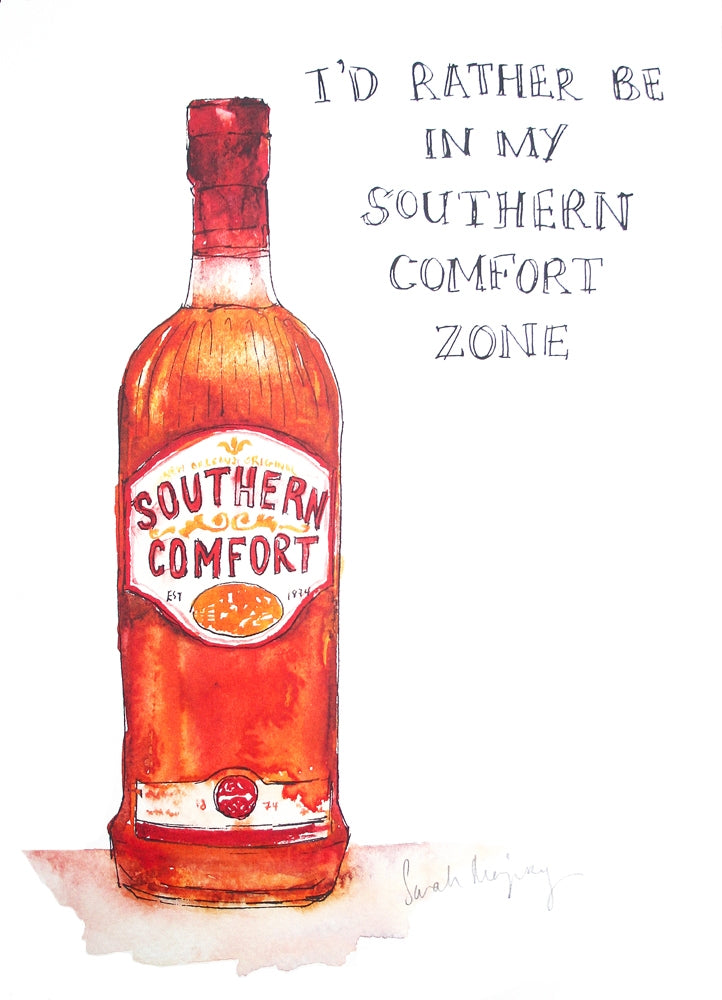 I'D RATHER BE
IN MY
SOUTHERN
COMFORT
ZONE
NEW ORLEANS ORIGINAL
SOUTHERN
COMFORT
EST 1874
18 74
Sarah